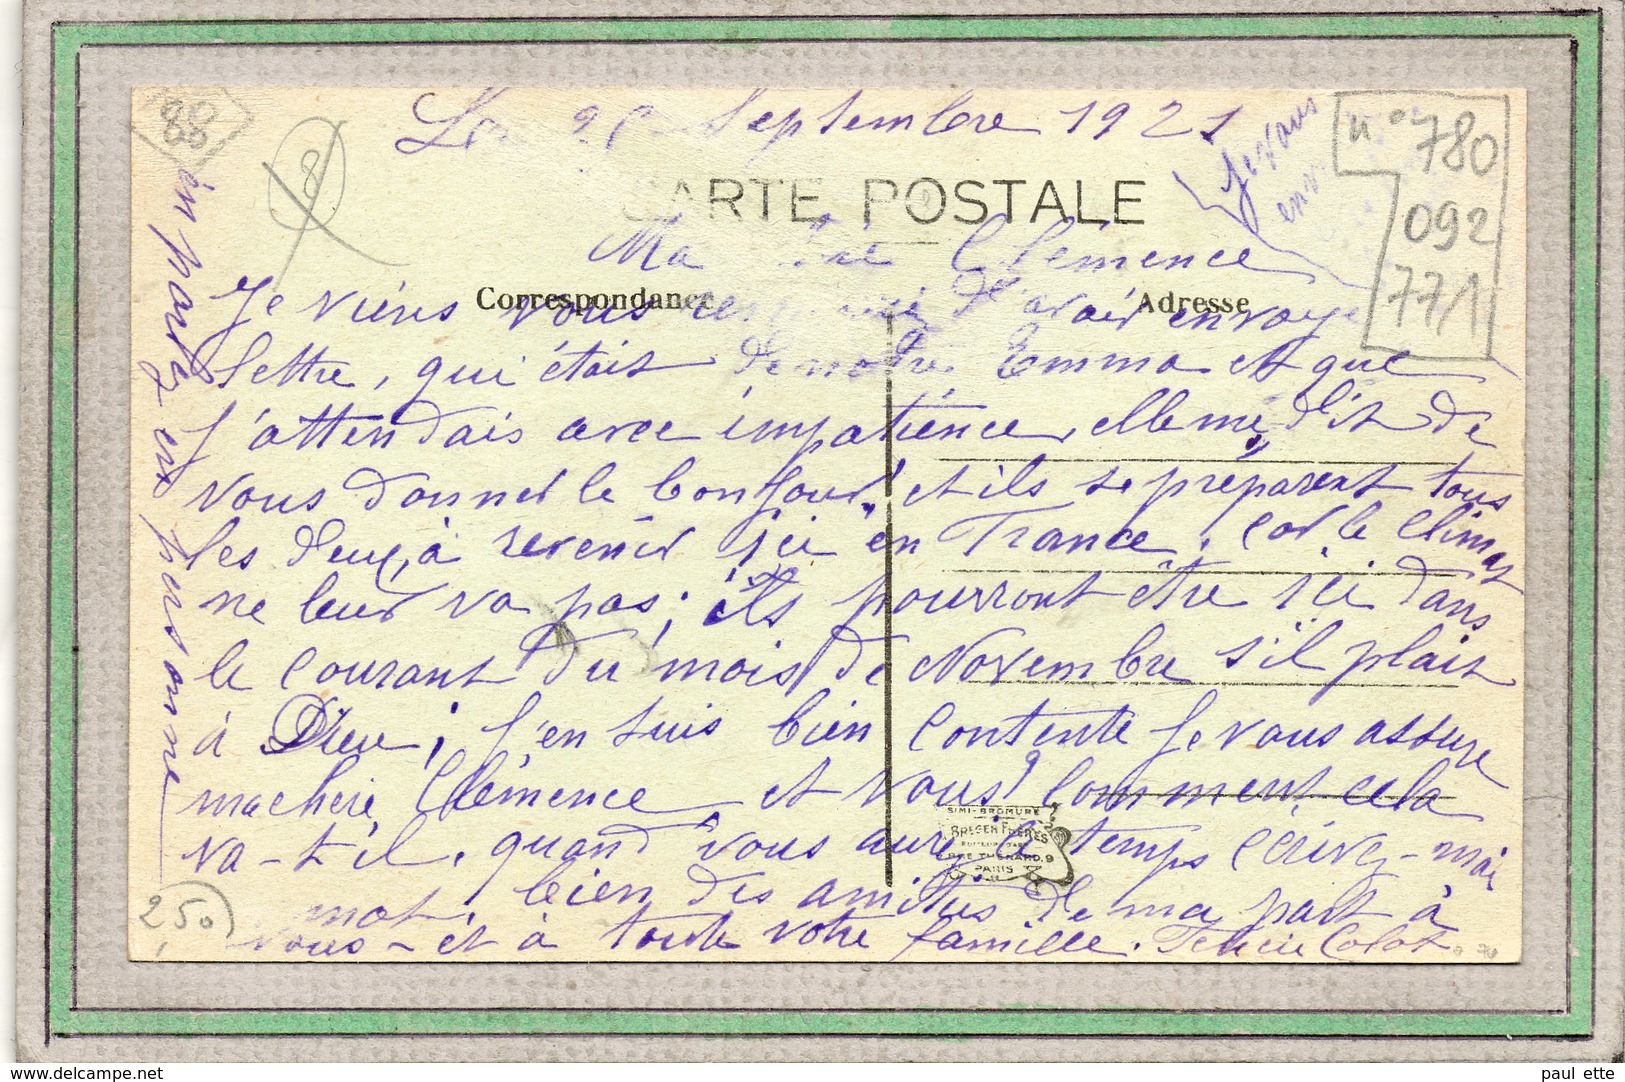 Septembre 1921
Je vous
n° 780
092
77/1
CARTE POSTALE
Ma Clémence
Correspondance
Adresse
Je viens vous d'avoir envoyé
lettre, qui étais de notre Emma et que
j'attendais avec impatience, elle me dit de
vous donner le bonjour, et ils se préparent tous
les deux, à revenir ici en France. Car le climat
ne leur va pas; ils pourront être ici dans
le courant du mois de Novembre s'il plait
à Dieu; j'en suis bien contente je vous assure
ma chère Clémence et vous? Comment cela
va-t'il, quand vous aurez le temps écrivez-moi
mot, bien des amitiés de ma part à
vous - et à toute votre famille. Félicie Colot
n'en parlez en personne
SIMI-BROMURE
BREGER FRÈRES
9 RUE THENARD. 9
PARIS
2,50
delcampe.net
paul ette